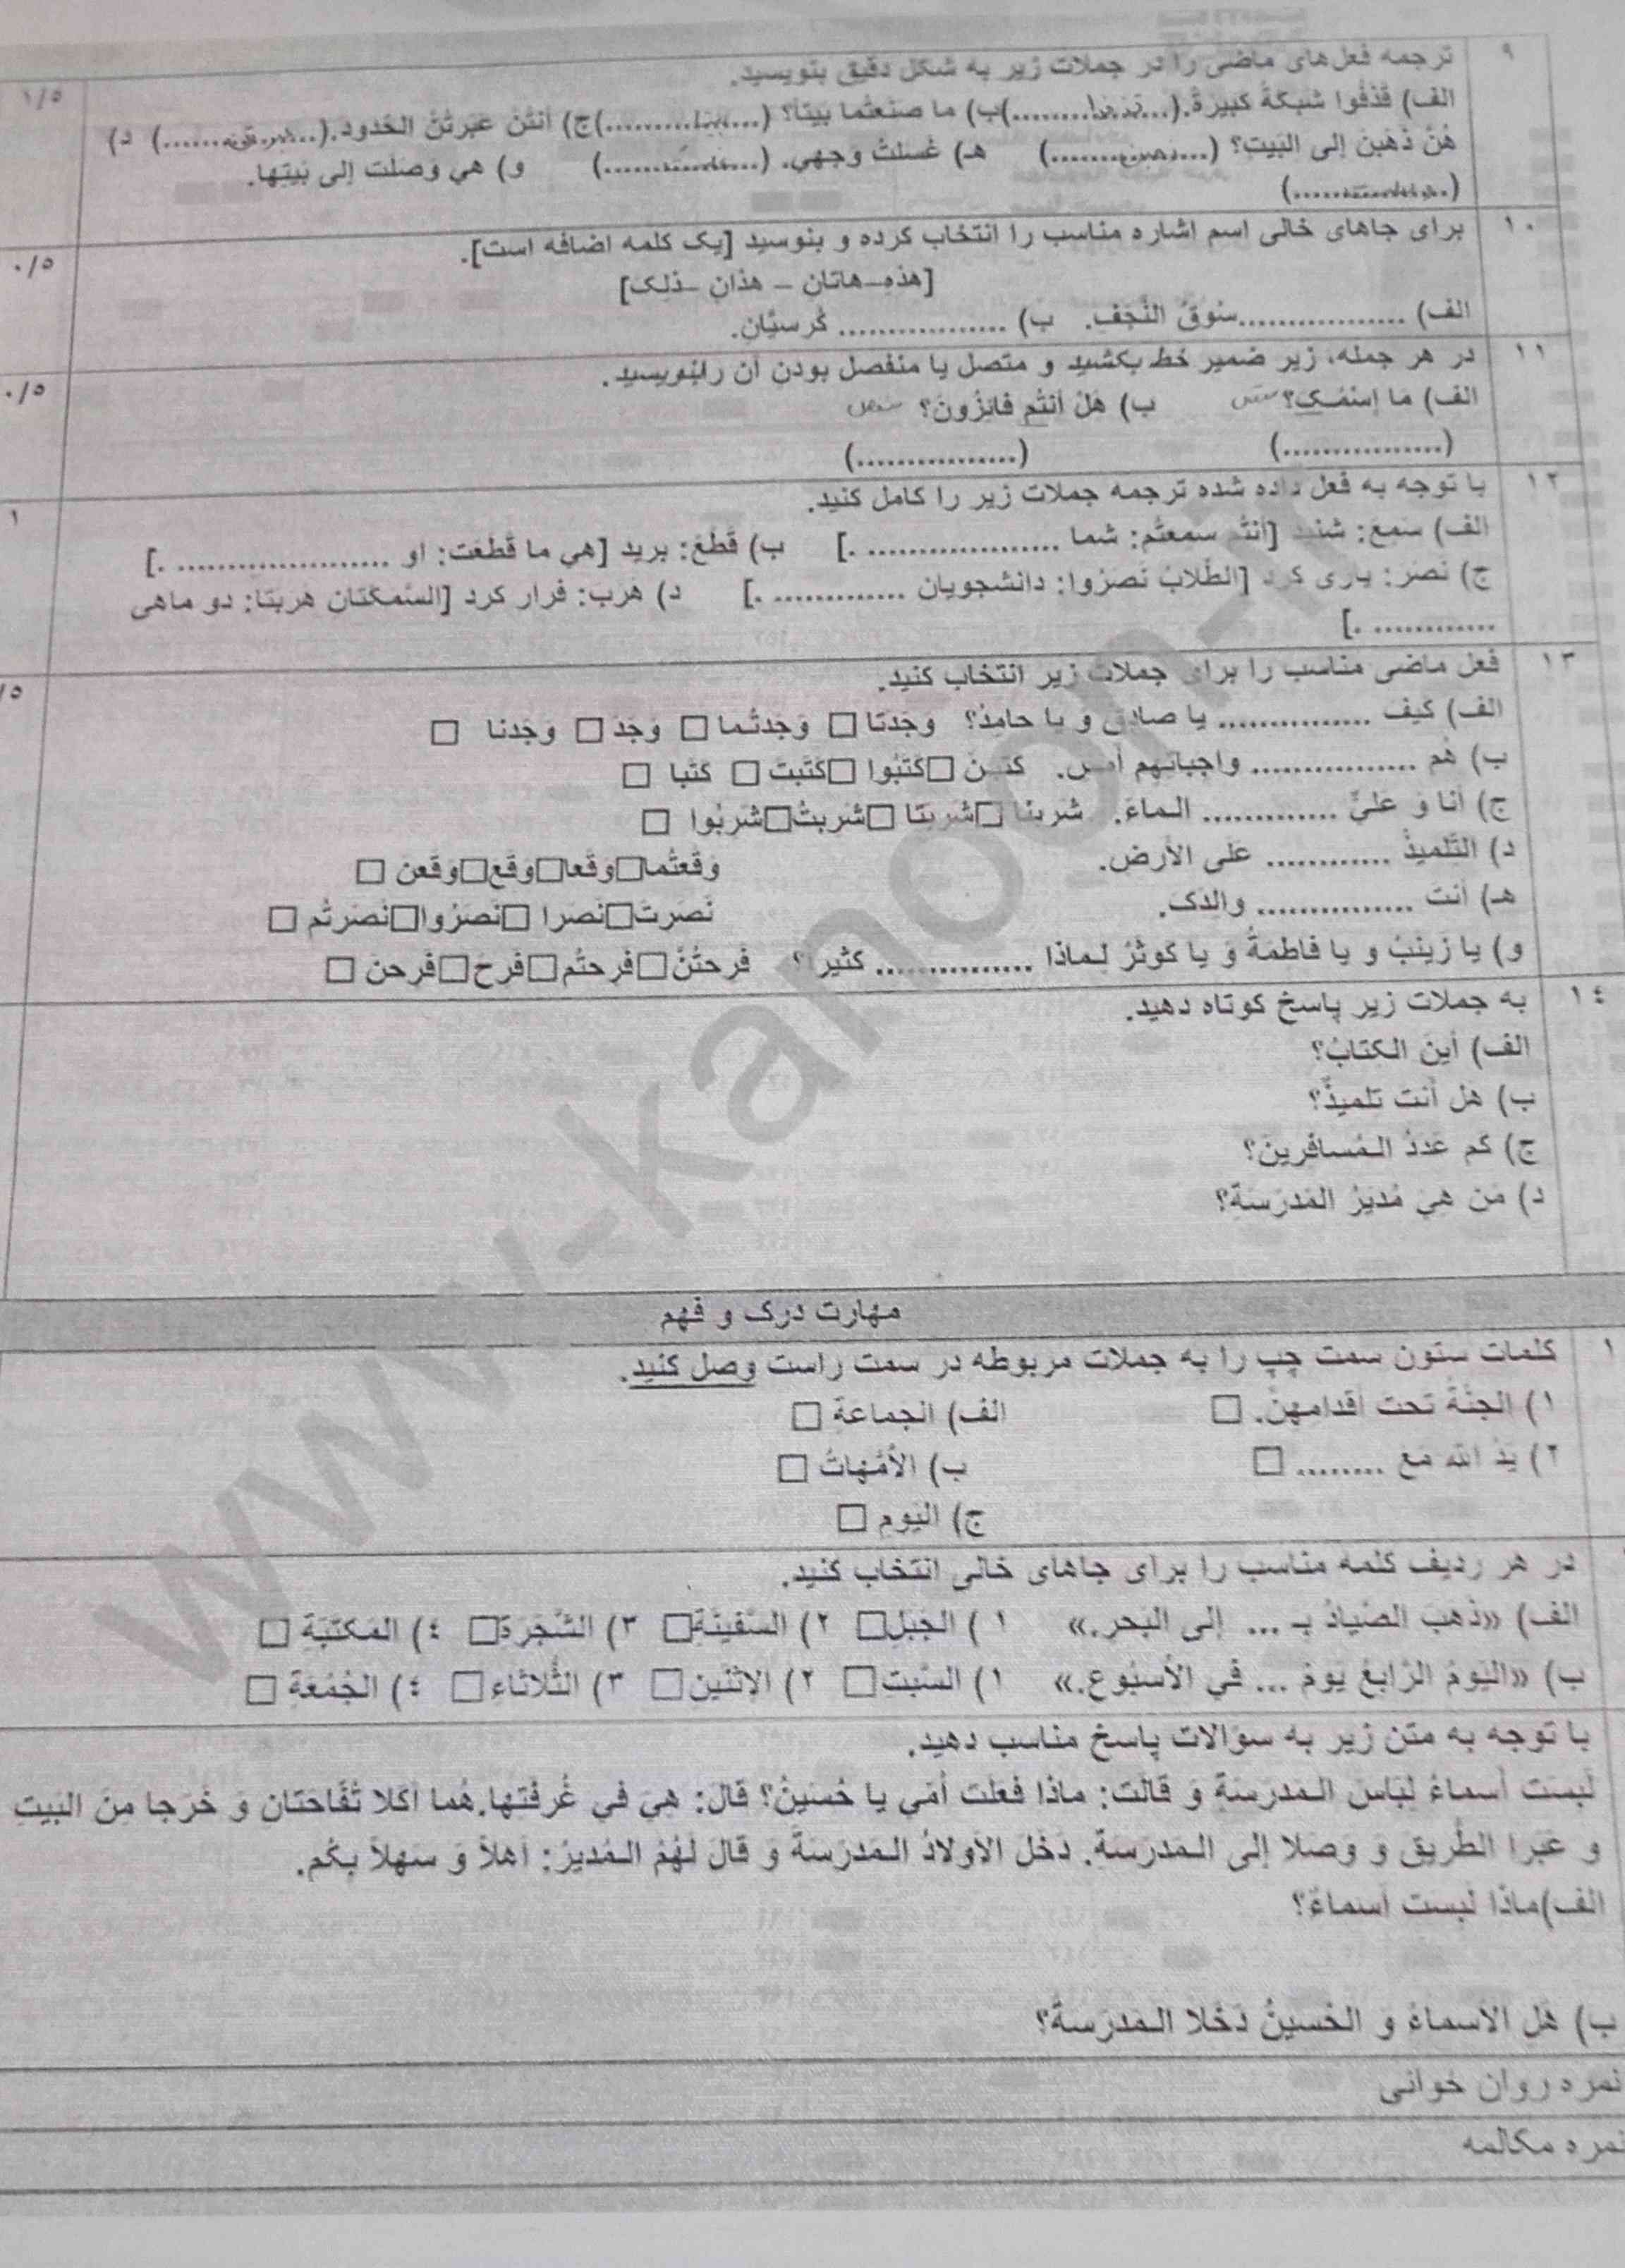 ۹
ترجمه فعل‌های ماضی را در جملات زیر به شکل دقیق بنویسید.
۱/۵
الف) قَذَفُوا شَبَكَةً كَبيرَةً.(..................)ب) ما صَنَعتُما بَيتاً؟ (..................)ج) أنتُنَّ عَبَرتُنَّ الحُدود.(..................) د)
هُنَّ ذَهَبنَ إلى البَيتِ؟ (..................) هـ) غَسَلتُ وَجهي. (..................) و) هي وَصَلَت إلى بَيتِها.
(..................)
۱۰
برای جاهای خالی اسم اشاره مناسب را انتخاب کرده و بنوسید [یک کلمه اضافه است].
۰/۵
[هذهِ–هاتانِ – هذانِ –ذلک]
الف) ..................سُوقُ النَّجَف. ب) .................. كُرسيَّانِ.
۱۱
در هر جمله، زیر ضمیر خط بکشید و متصل یا منفصل بودن آن را بنویسید.
۰/۵
الف) مَا إسْمُـکِ؟ متصل ب) هَلْ أنتُم فائِزُونَ؟ منفصل
(..................) (..................)
۱۲
با توجه به فعل داده شده ترجمه جملات زیر را کامل کنید.
۱
الف) سَمِعَ: شنید [أنتُم سمعتُم: شما .................. .] ب) قَطَعَ: برید [هي ما قَطَعَت: او .................. .]
ج) نَصَرَ: یاری کرد [الطُّلابُ نَصَرُوا: دانشجویان ............. .] د) هَرَبَ: فرار کرد [السَّمَكَتان هَرَبَتا: دو ماهی
............ .]
۱۳
فعل ماضی مناسب را برای جملات زیر انتخاب کنید.
الف) كَيفَ ............... يا صادِق و يا حامِدُ؟ وَجَدَتا □ وَجَدتُـما □ وَجَدَ □ وَجَدنا □
ب) هُم ................ واجِباتِهِم أمسِ. كَتَبنَ □كَتَبُوا □كَتَبتَ □ كَتَبا □
ج) أنا وَ عَليٌّ ............. الـماءَ. شَرِبنا □شَرِبَتا □شَرِبتُ□شَرِبُوا □
د) التِّلميذُ ............ عَلَى الأرضِ. وَقَعتُما□وَقَعا□وَقَعَ□وَقَعنَ □
هـ) أنتَ ............... والدَکَ. نَصَرتَ□نَصَرا □نَصَرُوا□نَصَرتُم □
و) يا زَينَبُ و يا فاطِمَةُ وَ يا كَوثَرُ لـماذا ............... كثيراً؟ فَرِحتُنَّ□فَرِحتُم□فَرِحَ□فَرِحنَ □
۱٤
به جملات زیر پاسخ کوتاه دهید.
الف) أينَ الـكتابُ؟
ب) هَل أنتَ تلميذٌ؟
ج) كَم عَدَدُ الـمُسافِرينَ؟
د) مَن هِيَ مُديرُ المَدرَسَةِ؟
مهارت درک و فهم
۱
کلمات ستون سمت چپ را به جملات مربوطه در سمت راست وصل کنید.
۱) الجَنَّةُ تَحتَ أقدامِهِنَّ. □ الف) الجماعَةِ □
۲) يَدُ اللهِ مَعَ ........ □ ب) الأُمَّهاتُ □
ج) اليَومِ □
در هر ردیف کلمه مناسب را برای جاهای خالی انتخاب کنید.
الف) «ذَهَبَ الصَّيادُ بِـ ... إلى البَحرِ.» ۱) الجَبَلِ□ ۲) السَّفينَةِ□ ۳) الشَّجَرَةِ□ ٤) المَكتَبَةِ □
ب) «اليَومُ الرَّابِعُ يَومُ ... في الأسبُوعِ.» ۱) السَّبتِ□ ۲) الإثنَينِ□ ۳) الثُّلاثاءِ□ ٤) الجُمُعَةِ □
با توجه به متن زیر به سؤالات پاسخ مناسب دهید.
لَبِسَت أسماءُ لِباسَ الـمَدرَسَةِ وَ قالَت: ماذا فَعَلَت أُمّي يا حُسَينُ؟ قالَ: هِيَ في غُرفَتِها.هُما أكَلا تُفّاحَتانِ وَ خَرَجا مِنَ البَيتِ
و عَبَرا الطَّريق و وَصَلا إلى الـمَدرَسَةِ. دَخَلَ الأولادُ الـمَدرَسَةَ وَ قالَ لَهُمُ الـمُديرُ: أهلاً وَ سَهلاً بِكُم.
الف)ماذا لَبِسَت أسماءُ؟
ب) هَلِ الأسماءُ وَ الحُسينُ دَخَلا الـمَدرَسَةَ؟
نمره روان خوانی
نمره مکالمه